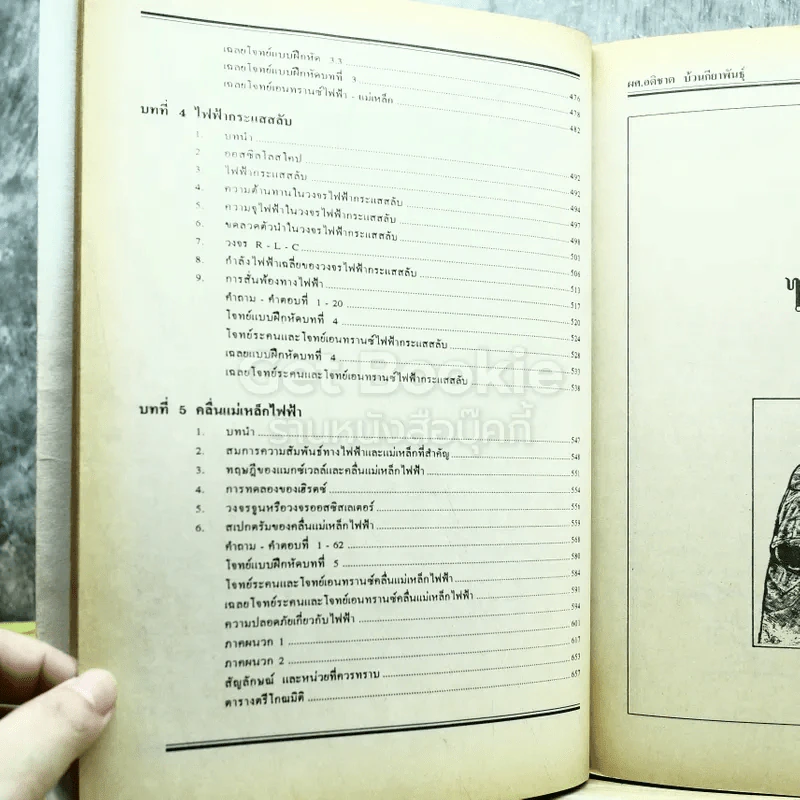 เฉลยโจทย์แบบฝึกหัด 3.3 476
เฉลยโจทย์แบบฝึกหัดบทที่ 3 478
เฉลยโจทย์เอนทรานซ์ไฟฟ้า - แม่เหล็ก 482
บทที่ 4 ไฟฟ้ากระแสสลับ
1. บทนำ 492
2. ออสซิลโลสโคป 492
3. ไฟฟ้ากระแสสลับ 494
4. ความต้านทานในวงจรไฟฟ้ากระแสสลับ 497
5. ความจุไฟฟ้าในวงจรไฟฟ้ากระแสสลับ 498
6. ขดลวดตัวนำในวงจรไฟฟ้ากระแสสลับ 501
7. วงจร R - L - C 506
8. กำลังไฟฟ้าเฉลี่ยของวงจรไฟฟ้ากระแสสลับ 513
9. การสั่นพ้องทางไฟฟ้า 517
คำถาม - คำตอบที่ 1 - 20 520
โจทย์แบบฝึกหัดบทที่ 4 524
โจทย์ระคนและโจทย์เอนทรานซ์ไฟฟ้ากระแสสลับ 528
เฉลยแบบฝึกหัดบทที่ 4 533
เฉลยโจทย์ระคนและโจทย์เอนทรานซ์ไฟฟ้ากระแสสลับ 538
Get Bookie
ร้านหนังสือบุ๊คกี้
บทที่ 5 คลื่นแม่เหล็กไฟฟ้า
1. บทนำ 547
2. สมการความสัมพันธ์ทางไฟฟ้าและแม่เหล็กที่สำคัญ 548
3. ทฤษฎีของแมกซ์เวลล์และคลื่นแม่เหล็กไฟฟ้า 551
4. การทดลองของเฮิรตซ์ 554
5. วงจรจูนหรือวงจรออสซิสเลเตอร์
6. สเปกตรัมของคลื่นแม่เหล็กไฟฟ้า 559
คำถาม - คำตอบที่ 1 - 62 568
โจทย์แบบฝึกหัดบทที่ 5 580
โจทย์ระคนและโจทย์เอนทรานซ์คลื่นแม่เหล็กไฟฟ้า 584
เฉลยโจทย์ระคนและโจทย์เอนทรานซ์คลื่นแม่เหล็กไฟฟ้า 591
ความปลอดภัยเกี่ยวกับไฟฟ้า 594
ภาคผนวก 1 601
ภาคผนวก 2 617
สัญลักษณ์ และหน่วยที่ควรทราบ 653
ตารางตรีโกณมิติ 657
ผศ.อติชาต บ้วนกียาพันธุ์